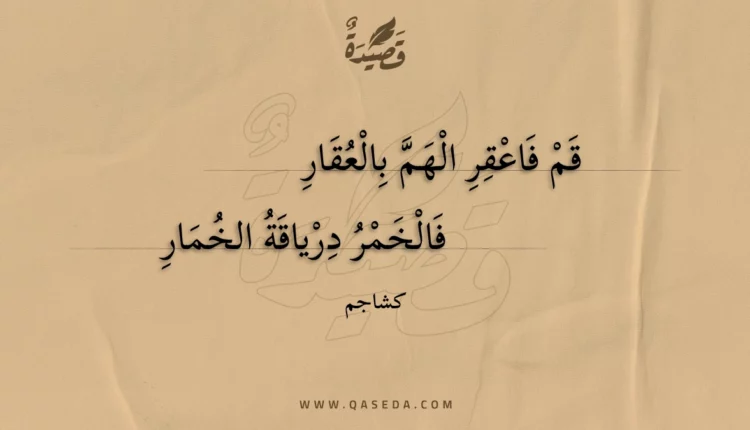 قَصِيدَةٌ
قَمْ فَاعْقِرِ الْهَمَّ بِالْعُقَارِ
فَالْخَمْرُ دِرْياقَةُ الخُمَارِ
كشاجم
WWW.QASEDA.COM